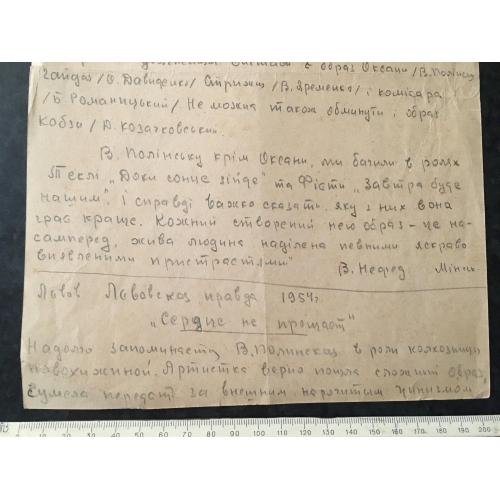 вистави є образ Оксани /В. Полінсь
Гайдай /О. Давиденко/ Стрижни /В. Яременко/ і комісара
/Б. Романицький/ Не можна також обминути і образ
Кобзи /Д. Козачковський.
В. Полінську крім Оксани, ми бачили в ролях
Теклі „Доки сонце зійде" та Фісти „Завтра буде
нашим". І справді важко сказать яку з них вона
грає краще. Кожний створений нею образ - це на-
самперед, жива людина наділена певними яскраво
виявленими пристрастями"
В. Нефед Мінськ
Львов Львовская правда 1954 г.
„Сердце не прощает"
Надолго запоминается В. Полинская в роли колхозницы
Артистка верно поняла сложный образ,
сумела передать за внешним, нарочитым цинизмом